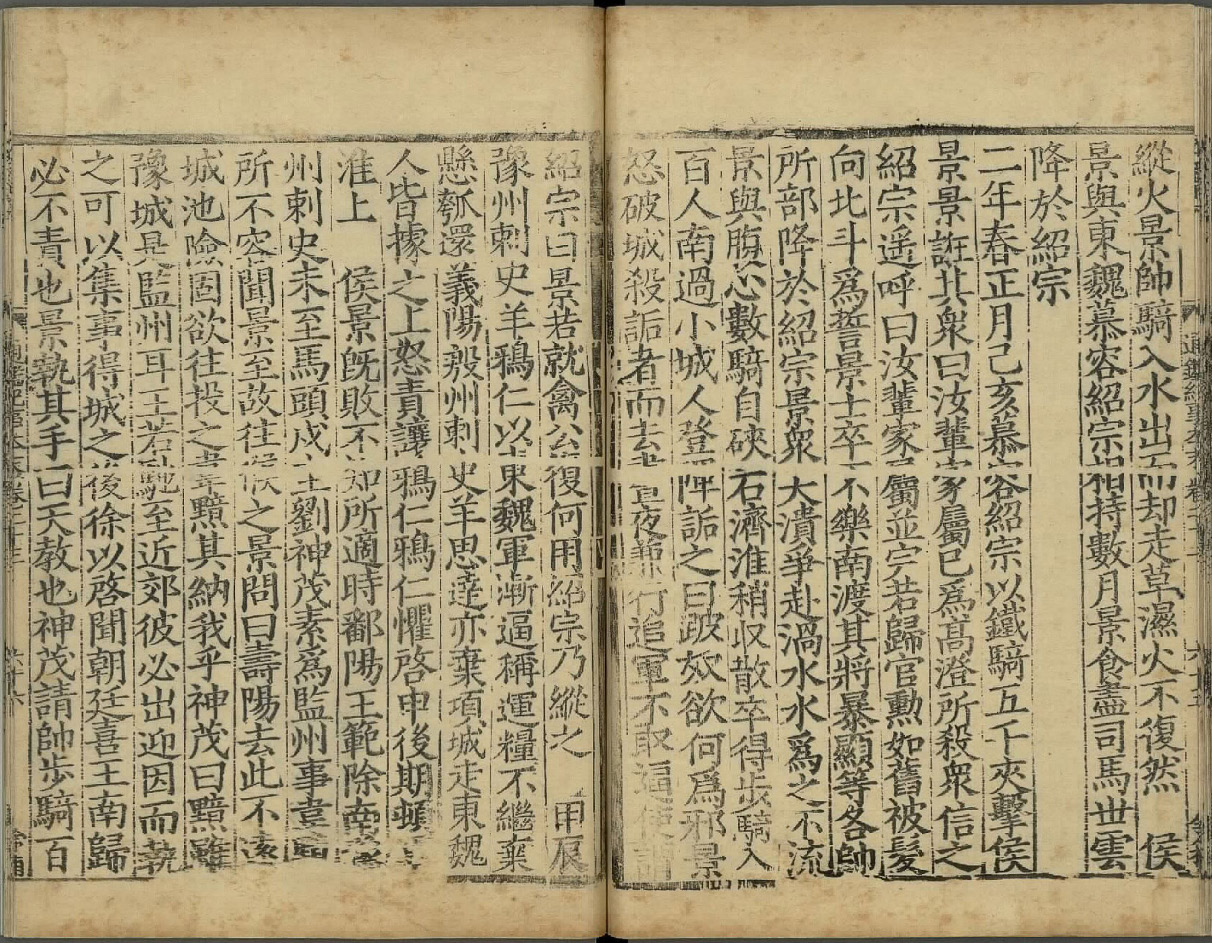 縱火景帥騎入水出而却走草濕火不復然　侯
景與東魏慕容紹宗相持數月景食盡司馬世雲
降於紹宗
二年春正月己亥慕容紹宗以鐵騎五千夾擊侯
景景誑其衆曰汝輩家屬已爲高澄所殺衆信之
紹宗遥呼曰汝輩家屬並完若歸官勲如舊被髮
向北斗爲誓景士卒不樂南渡其將暴顯等各帥
所部降於紹宗景衆大潰爭赴渦水水爲之不流
景與腹心數騎自硤石濟淮稍収散卒得步騎入
百人南過小城人登陴詬之曰跛奴欲何爲邪景
怒破城殺詬者而去晝夜兼行追軍不敢逼使謂
通鑑紀事本末卷二十三
六十五
紹宗曰景若就禽公復何用紹宗乃縱之　甲辰
豫州刺史羊鴉仁以東魏軍漸逼稱運糧不繼棄
懸瓠還義陽殷州刺史羊思達亦棄項城走東魏
人皆據之上怒責讓鴉仁鴉仁懼啓申後期頓軍
淮上　侯景旣敗不知所適時鄱陽王範除南豫
州刺史未至馬頭戍主劉神茂素爲監州事韋黯
所不容聞景至故往候之景問曰壽陽去此不遠
城池險固欲往投之韋黯其納我乎神茂曰黯雖
豫城是監州耳王若馳至近郊彼必出迎因而執
之可以集事得城之後徐以啓聞朝廷喜王南歸
必不責也景執其手曰天教也神茂請帥步騎百
通鑑紀事本末卷二十三
六十六